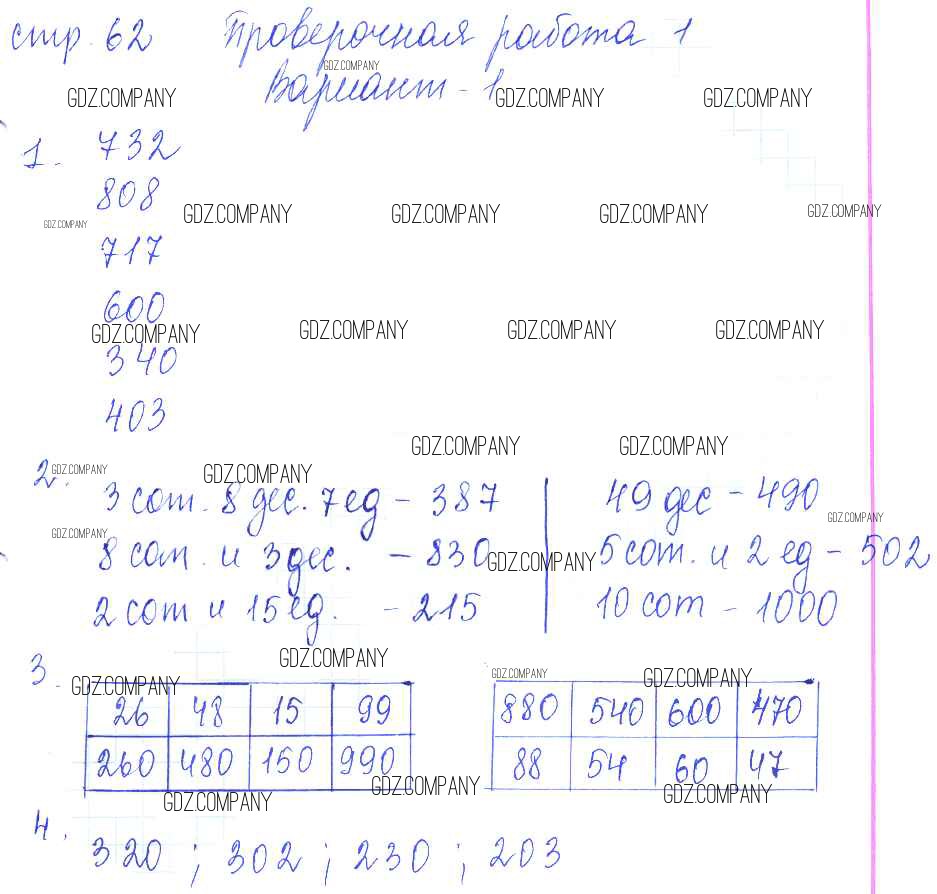 стр. 62 Проверочная работа 1
GDZ.COMPANY
Вариант - 1
GDZ.COMPANY GDZ.COMPANY GDZ.COMPANY
1. 732
808
GDZ.COMPANY GDZ.COMPANY GDZ.COMPANY GDZ.COMPANY
GDZ.COMPANY
717
600
GDZ.COMPANY GDZ.COMPANY GDZ.COMPANY GDZ.COMPANY
340
403
GDZ.COMPANY GDZ.COMPANY
2. GDZ.COMPANY GDZ.COMPANY
3 сот. 8 дес. 7 ед - 387 49 дес - 490
GDZ.COMPANY GDZ.COMPANY
8 сот. и 3 дес. - 830 GDZ.COMPANY 5 сот. и 2 ед - 502
2 сот и 15 ед. - 215 10 сот - 1000
GDZ.COMPANY
3. GDZ.COMPANY GDZ.COMPANY GDZ.COMPANY
26 48 15 99 880 540 600 470
260 480 150 990 88 54 60 47
GDZ.COMPANY GDZ.COMPANY GDZ.COMPANY
4. 320 ; 302 ; 230 ; 203